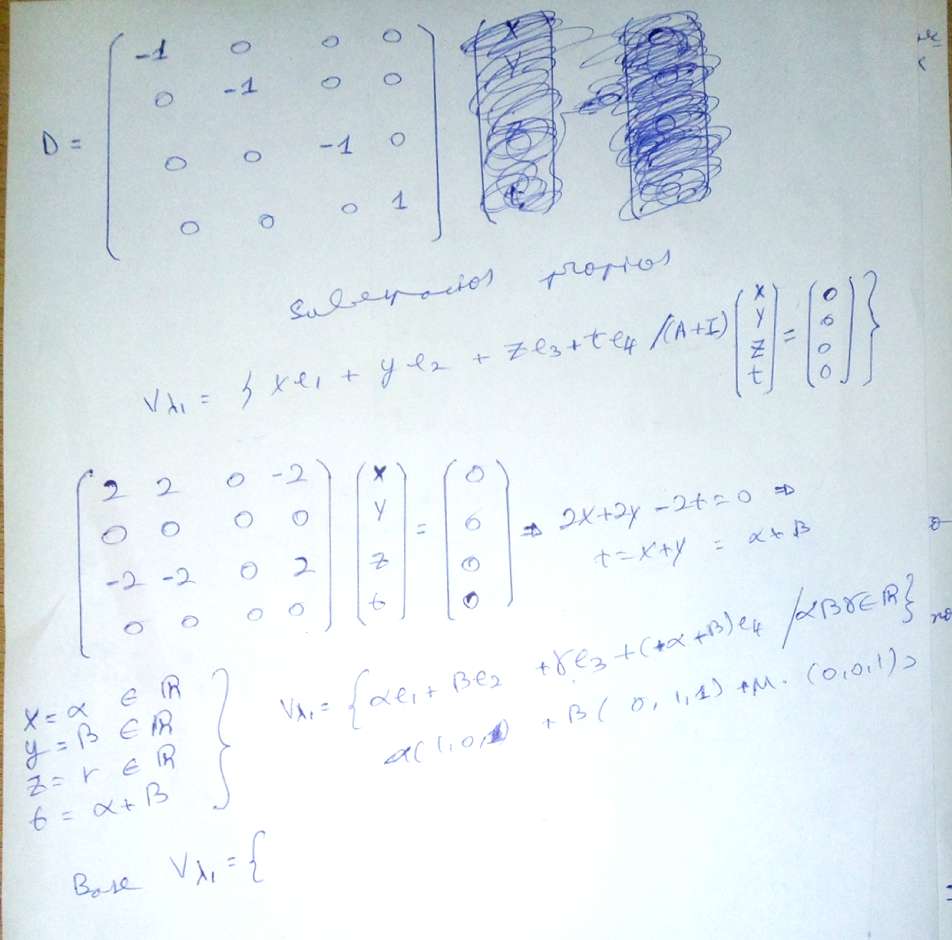 D = ( -1 0 0 0
0 -1 0 0
0 0 -1 0
0 0 0 1 )
Subespacios propios
Vλ₁ = { xe₁ + ye₂ + ze₃ + te₄ / (A+I) ( x y z t ) = ( 0 0 0 0 ) }
( 2 2 0 -2 ) ( x ) = ( 0 )
( 0 0 0 0 ) ( y ) = ( 0 ) ⇒ 2x+2y-2t=0 ⇒
( -2 -2 0 2 ) ( z ) = ( 0 ) t=x+y = α+β
( 0 0 0 0 ) ( t ) = ( 0 )
x = α ∈ ℝ
y = β ∈ ℝ
z = γ ∈ ℝ
t = α+β
Vλ₁ = { αe₁ + βe₂ + γe₃ + (+α+β)e₄ / αβγ∈ℝ }
α(1,0,1) + β(0,1,1) + μ·(0,0,1)
Base Vλ₁ = {